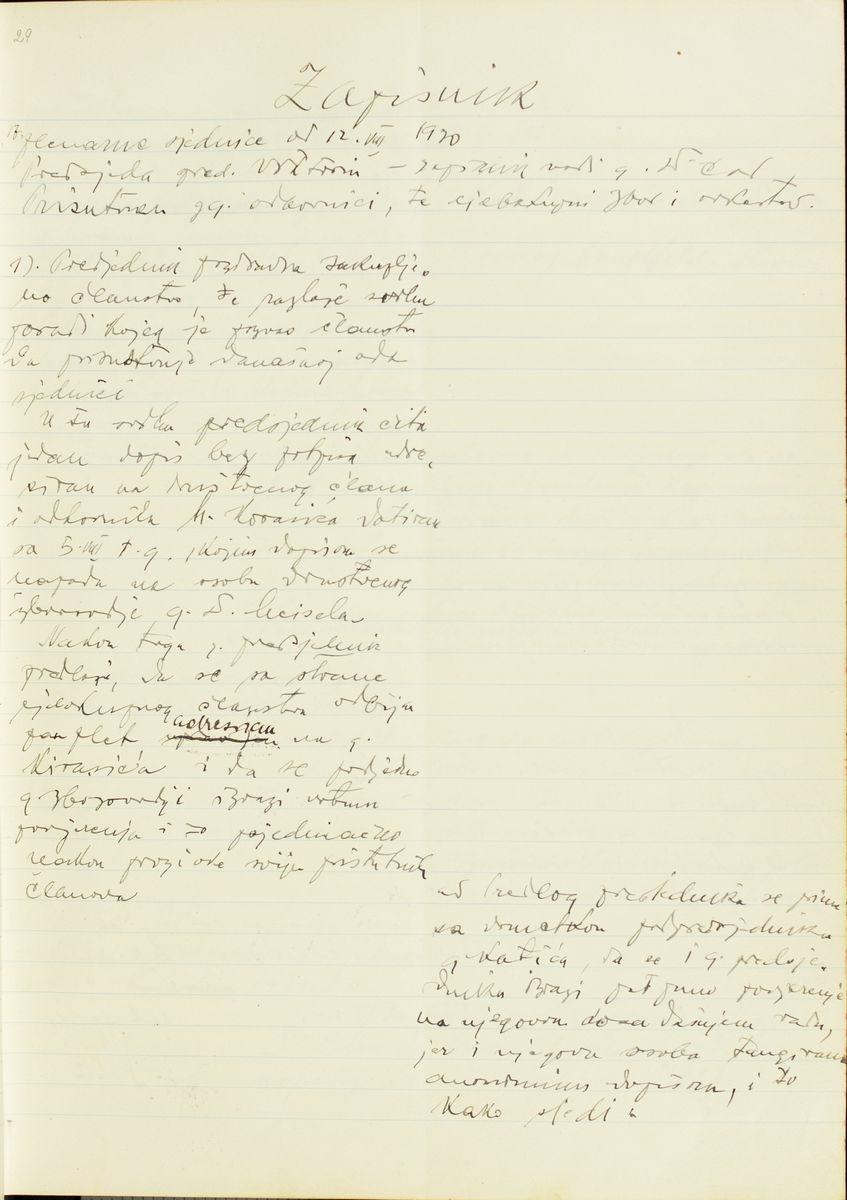 29
Zapisnik
plenarne sjednice od 12. VIII 1920
Predsjeda pred. Viktorin – zapisnik vodi g.
Prisutni gg. odbornici, te cjelokupni zbor i orkestar.
1). Predsjednik pozdravlja sakuplje-
no članstvo, te razlaže svrhu
poradi kojeg je pozvao članstvo
da prisustvuje današnjoj
sjednici
U tu svrhu predsjednik čita
jedan dopis bez potpisa adre-
siran na društvenog člana
i odbornika datiran
sa 5. VIII t. g., kojim dopisom se
napada na osobu društvenog
zborovodje g. D. Meisela.
Nakon toga g. predsjednik
predlaže, da se sa strane
cjelokupnog članstva odbija
pamflet adresiran na g.
Kirasića i da se podjedno
g zborovodji izrazi votum
povjerenja i to pojedinačno
nakon prozivke sviju prisutnih
članova
ad Predlog predsjednika se prima
sa dometkom podpredsjednika
g Katića, da se i g. predsje-
dniku izrazi potpuno povjerenje
na njegovom dosadašnjem radu,
jer i njegova osoba tangirana
anonimnim dopisom, i to
kako sljedi: